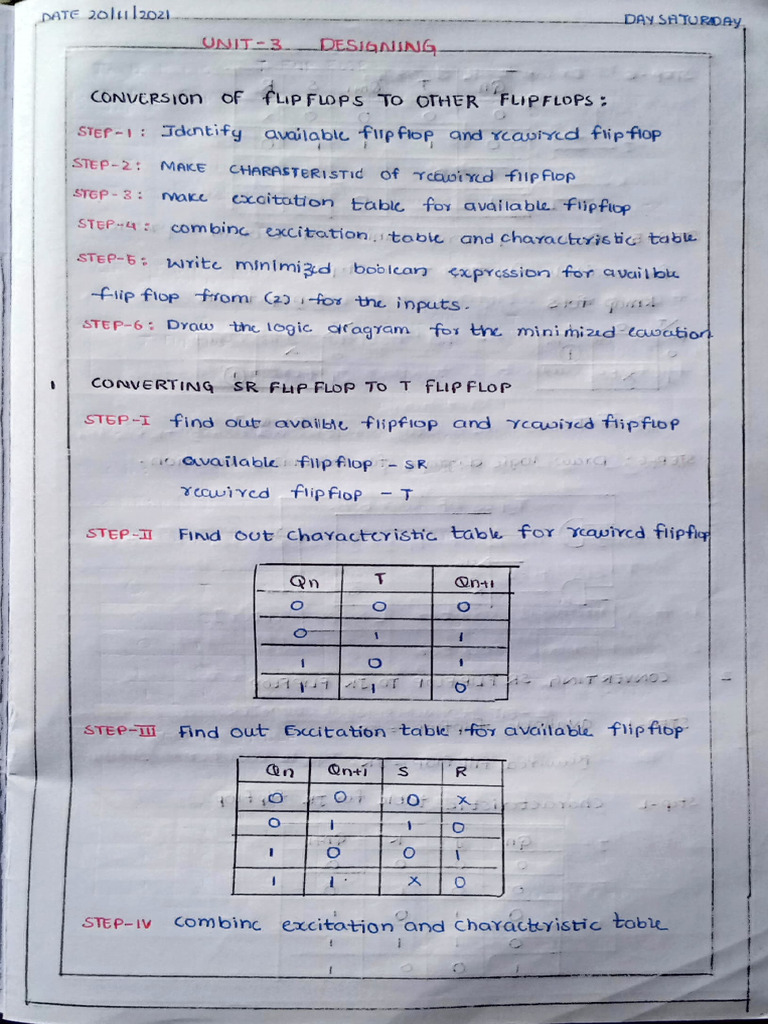 DATE 20/11/2021 DAY SATURDAY
UNIT-3 DESIGNING
CONVERSION OF FLIPFLOPS TO OTHER FLIPFLOPS:
STEP-1: Identify available flipflop and reauired flipflop
STEP-2: MAKE CHARASTERISTIC OF reauired flipflop
STEP-3: Make excitation table for available flipflop
STEP-4: combine excitation table and characteristic table
STEP-5: Write minimized boolean expression for availble
flip flop from (2) for the inputs.
STEP-6: Draw the logic diagram for the minimized eauation
1 CONVERTING SR FLIP FLOP TO T FLIPFLOP
STEP-I find out availble flipflop and reauired flipflop
available flipflop - SR
reauired flipflop - T
STEP-II Find out characteristic table for reauired flipflop
Qn T Qn+1
0 0 0
0 1 1
1 0 1
1 1 0
STEP-III Find out Excitation table for available flipflop
Qn Qn+1 S R
0 0 0 x
0 1 1 0
1 0 0 1
1 1 x 0
STEP-IV combine excitation and characteristic table